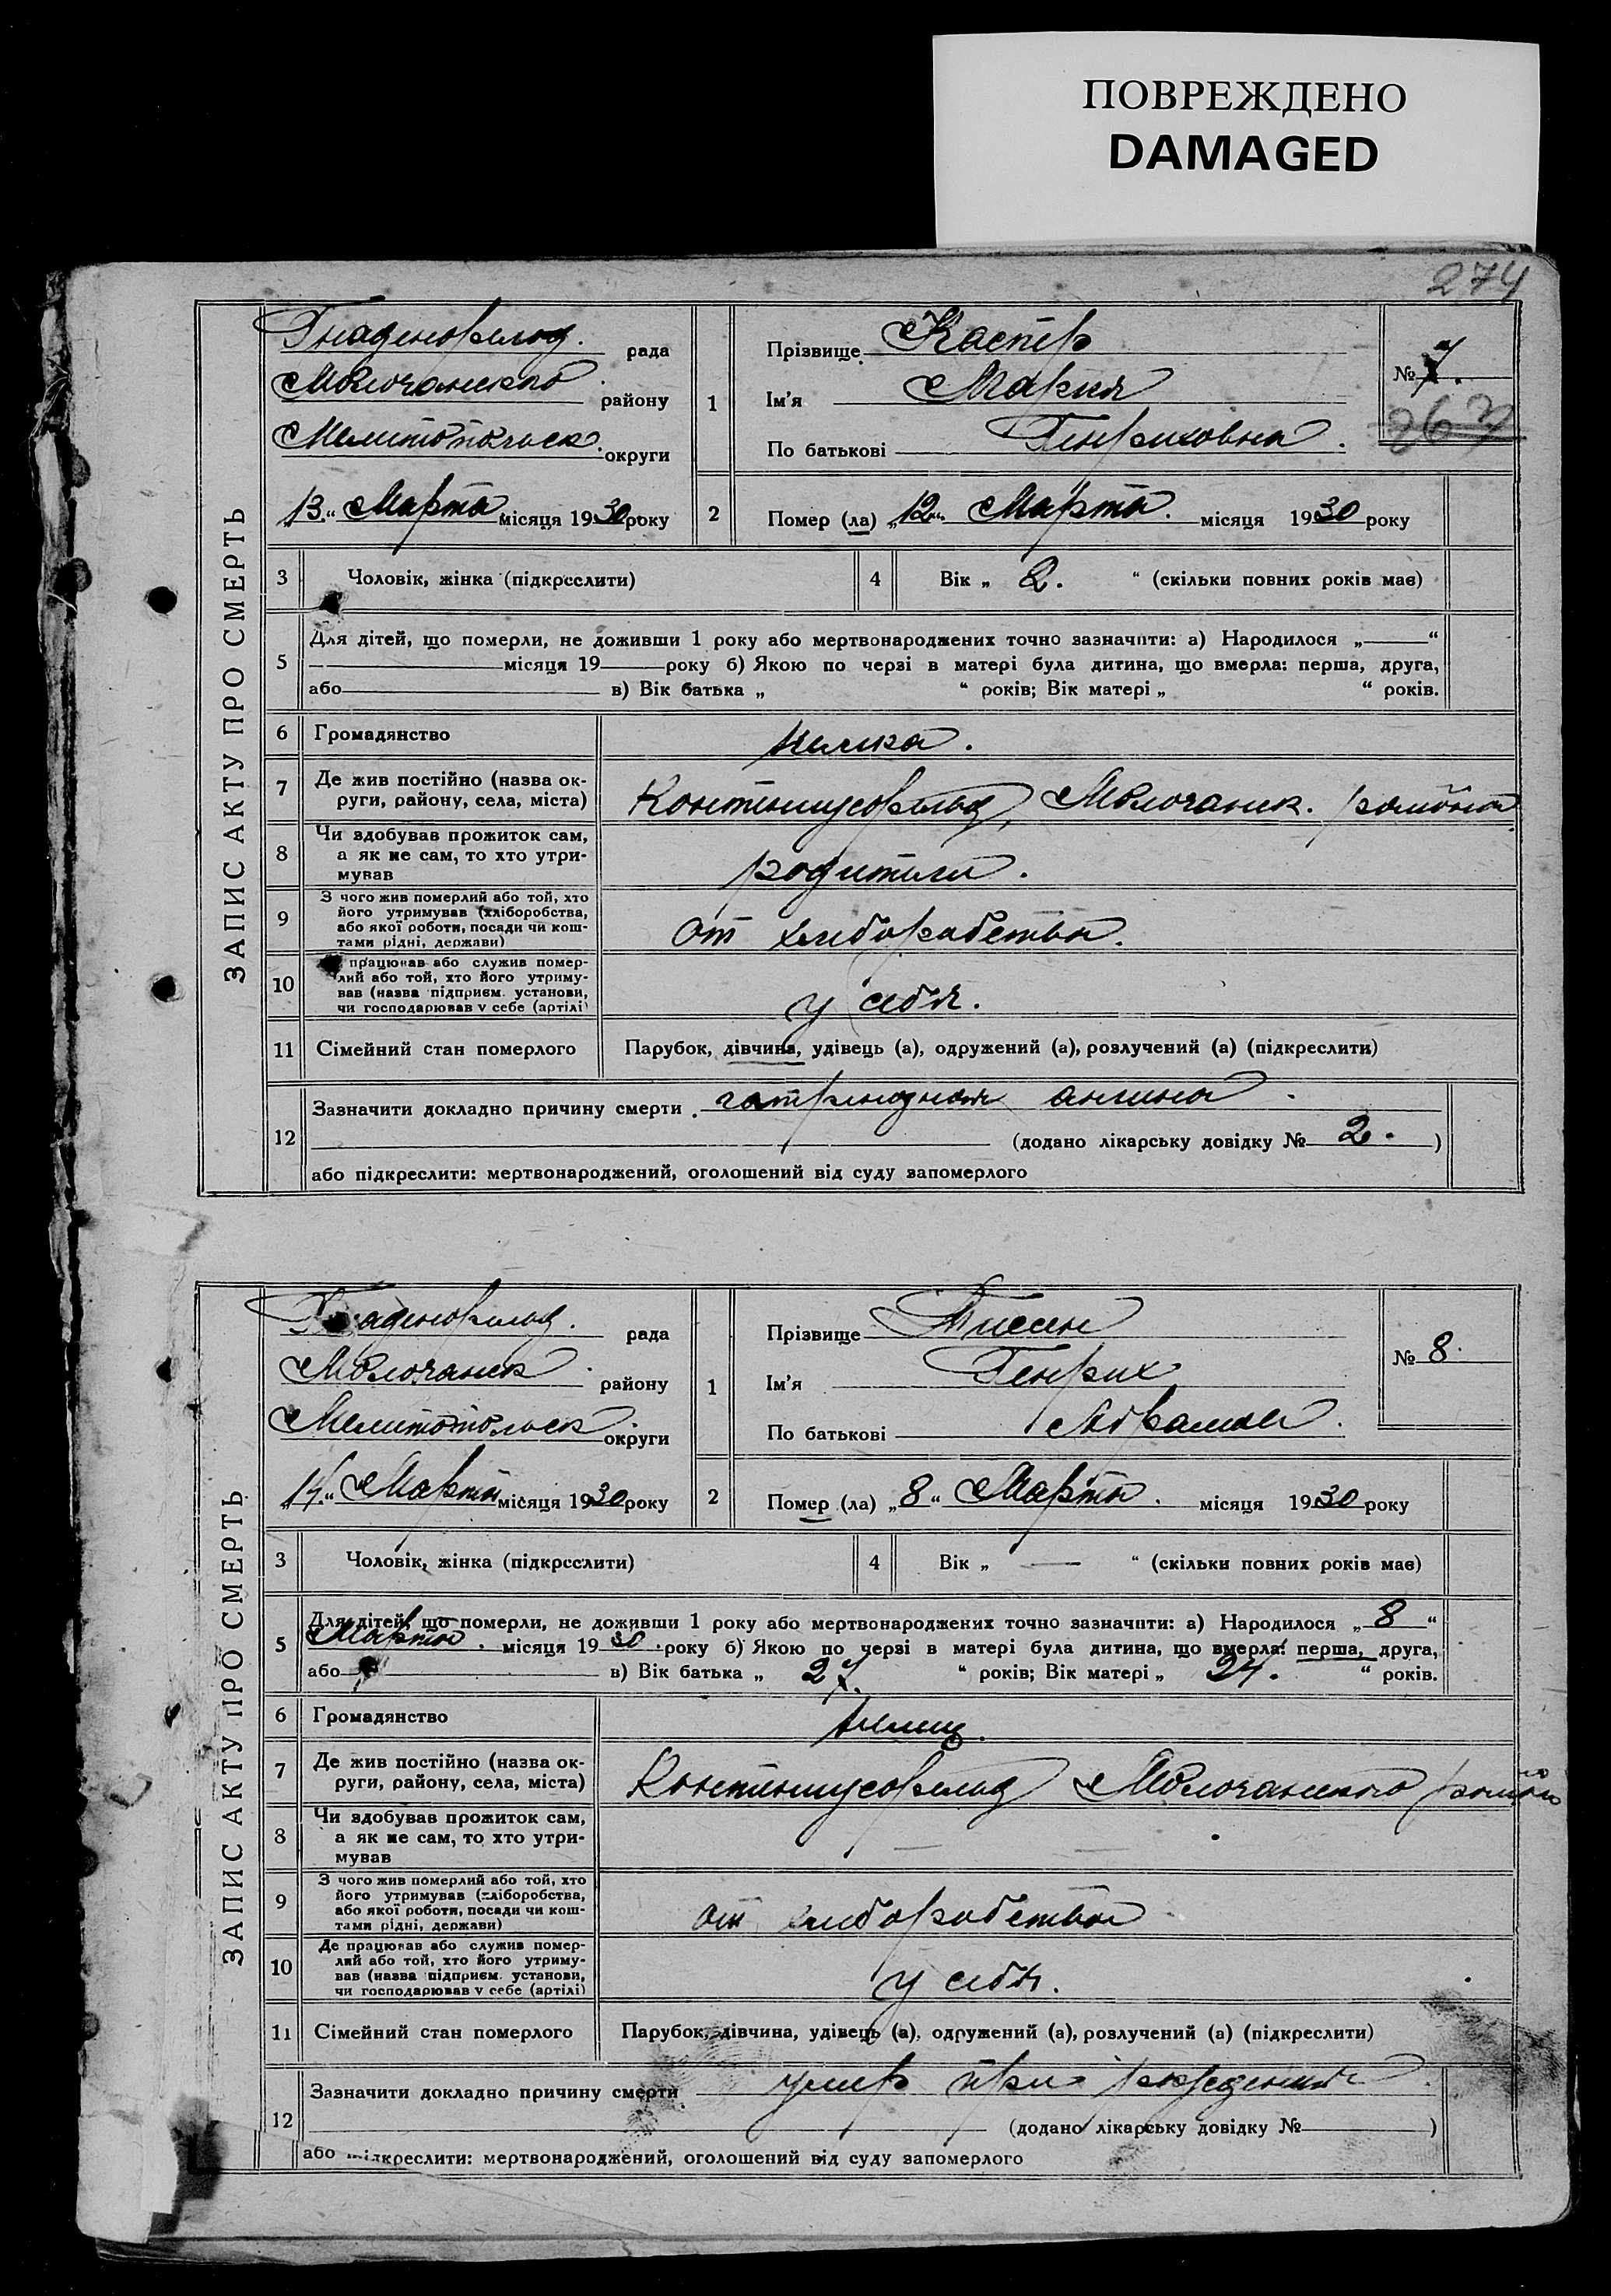 ПОВРЕЖДЕНО
DAMAGED
274
ЗАПИС АКТУ ПРО СМЕРТЬ
Гнаденфельд. рада
Молочанского району
Мелитопольск. округи
„13.“ Марта місяця 1930 року
1
Прізвище Каспер
Ім'я Мария
По батькові Генриховна.
№ 7.
2 Помер (ла) „12“ Марта. місяця 1930 року
3 Чоловік, жінка (підкреслити)
4 Вік „ 2. “ (скільки повних років має)
5 Для дітей, що померли, не доживши 1 року або мертвонароджених точно зазначити: а) Народилося „ “
місяця 19 року б) Якою по черзі в матері була дитина, що вмерла: перша, друга,
або в) Вік батька „ “ років; Вік матері „ “ років.
6 Громадянство немка.
7 Де жив постійно (назва округи, району, села, міста) Контениусфельд, Молочанск. района
8 Чи здобував прожиток сам, а як не сам, то хто утримував родители.
9 З чого жив померлий або той, хто його утримував (хліборобства, або якої роботи, посади чи коштами рідні, держави) от хлеборобства.
10 працював або служив помер-
лий або той, хто його утриму-
вав (назва підприєм. установи,
чи господарював у себе (артілі) у себя.
11 Сімейний стан померлого Парубок, дівчина, удівець (а), одружений (а), розлучений (а) (підкреслити)
12 Зазначити докладно причину смерти ангина.
(додано лікарську довідку № 2. )
або підкреслити: мертвонароджений, оголошений від суду запомерлого
ЗАПИС АКТУ ПРО СМЕРТЬ
Гнаденфельд. рада
Молочанск. району
Мелитопольск. округи
„14.“ Марта місяця 1930 року
1
Прізвище Тиссен
Ім'я Генрих
По батькові Абрамов.
№ 8.
2 Помер (ла) „8“ Марта. місяця 1930 року
3 Чоловік, жінка (підкреслити)
4 Вік „ — “ (скільки повних років має)
5 Для дітей, що померли, не доживши 1 року або мертвонароджених точно зазначити: а) Народилося „8“
Марта. місяця 1930. року б) Якою по черзі в матері була дитина, що вмерла: перша, друга,
або в) Вік батька „ 27. “ років; Вік матері „ 24. “ років.
6 Громадянство немец.
7 Де жив постійно (назва округи, району, села, міста) Контениусфельд Молочанского район
8 Чи здобував прожиток сам, а як не сам, то хто утримував — —
9 З чого жив померлий або той, хто його утримував (хліборобства, або якої роботи, посади чи коштами рідні, держави) от хлеборобства
10 Де працював або служив помер-
лий або той, хто його утриму-
вав (назва підприєм. установи,
чи господарював у себе (артілі) у себя.
11 Сімейний стан померлого Парубок, дівчина, удівець (а), одружений (а), розлучений (а) (підкреслити)
12 Зазначити докладно причину смерти умер при рождении.
(додано лікарську довідку № )
або підкреслити: мертвонароджений, оголошений від суду запомерлого